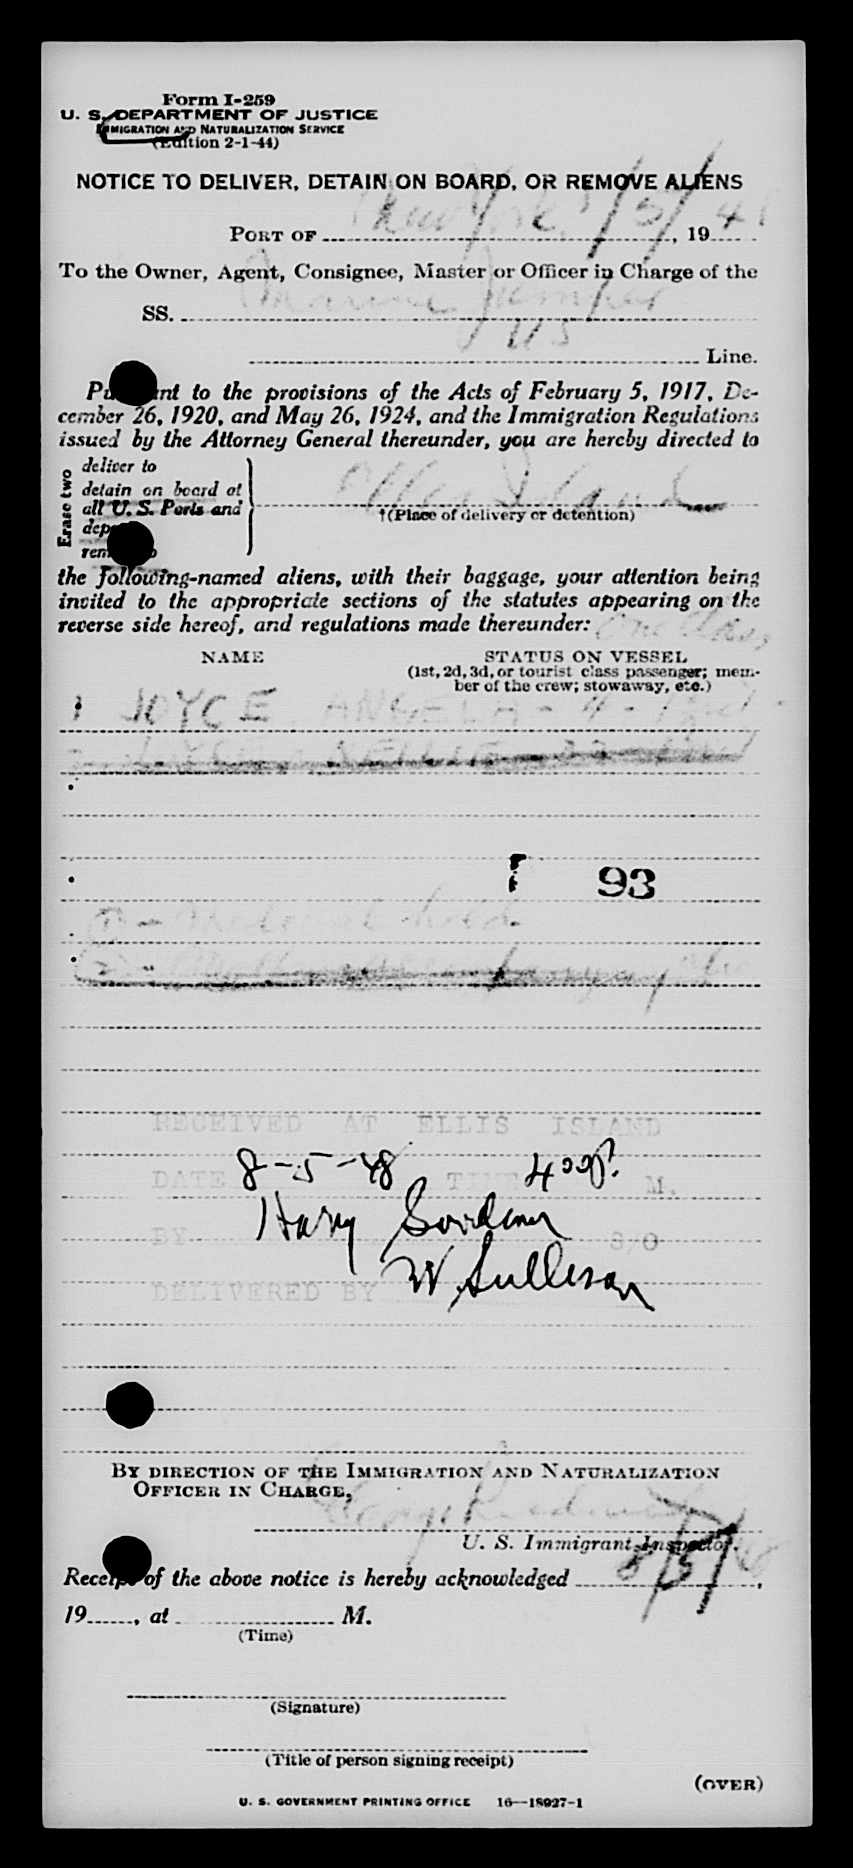 Form I-259
U. S. DEPARTMENT OF JUSTICE
IMMIGRATION AND NATURALIZATION SERVICE
(Edition 2-1-44)
NOTICE TO DELIVER, DETAIN ON BOARD, OR REMOVE ALIENS
PORT OF New York 8/5/, 1948
To the Owner, Agent, Consignee, Master or Officer in Charge of the
SS. Marine Jumper
US Line.
Pursuant to the provisions of the Acts of February 5, 1917, De-
cember 26, 1920, and May 26, 1924, and the Immigration Regulations
issued by the Attorney General thereunder, you are hereby directed to
Erase two
deliver to
detain on board at
all U. S. Ports and
remove to
Ellis Island
†(Place of delivery or detention)
the following-named aliens, with their baggage, your attention being
invited to the appropriate sections of the statutes appearing on the
reverse side hereof, and regulations made thereunder: One
NAME
STATUS ON VESSEL
(1st, 2d, 3d, or tourist class passenger; mem-
ber of the crew; stowaway, etc.)
1 JOYCE ANGELA - 4 -
2 JOYCE NELLIE - 33
93
(1) - Medical hold.
(2) - accompanying
RECEIVED AT ELLIS ISLAND
DATE 8-5-48 TIME 4 00 P. M.
BY Harry S/O
DELIVERED BY W Sullivan
BY DIRECTION OF THE IMMIGRATION AND NATURALIZATION
OFFICER IN CHARGE,
George
U. S. Immigrant Inspector.
Receipt of the above notice is hereby acknowledged 8/5/48,
19, at M.
(Time)
(Signature)
(Title of person signing receipt)
(OVER)
U. S. GOVERNMENT PRINTING OFFICE 16—18927-1